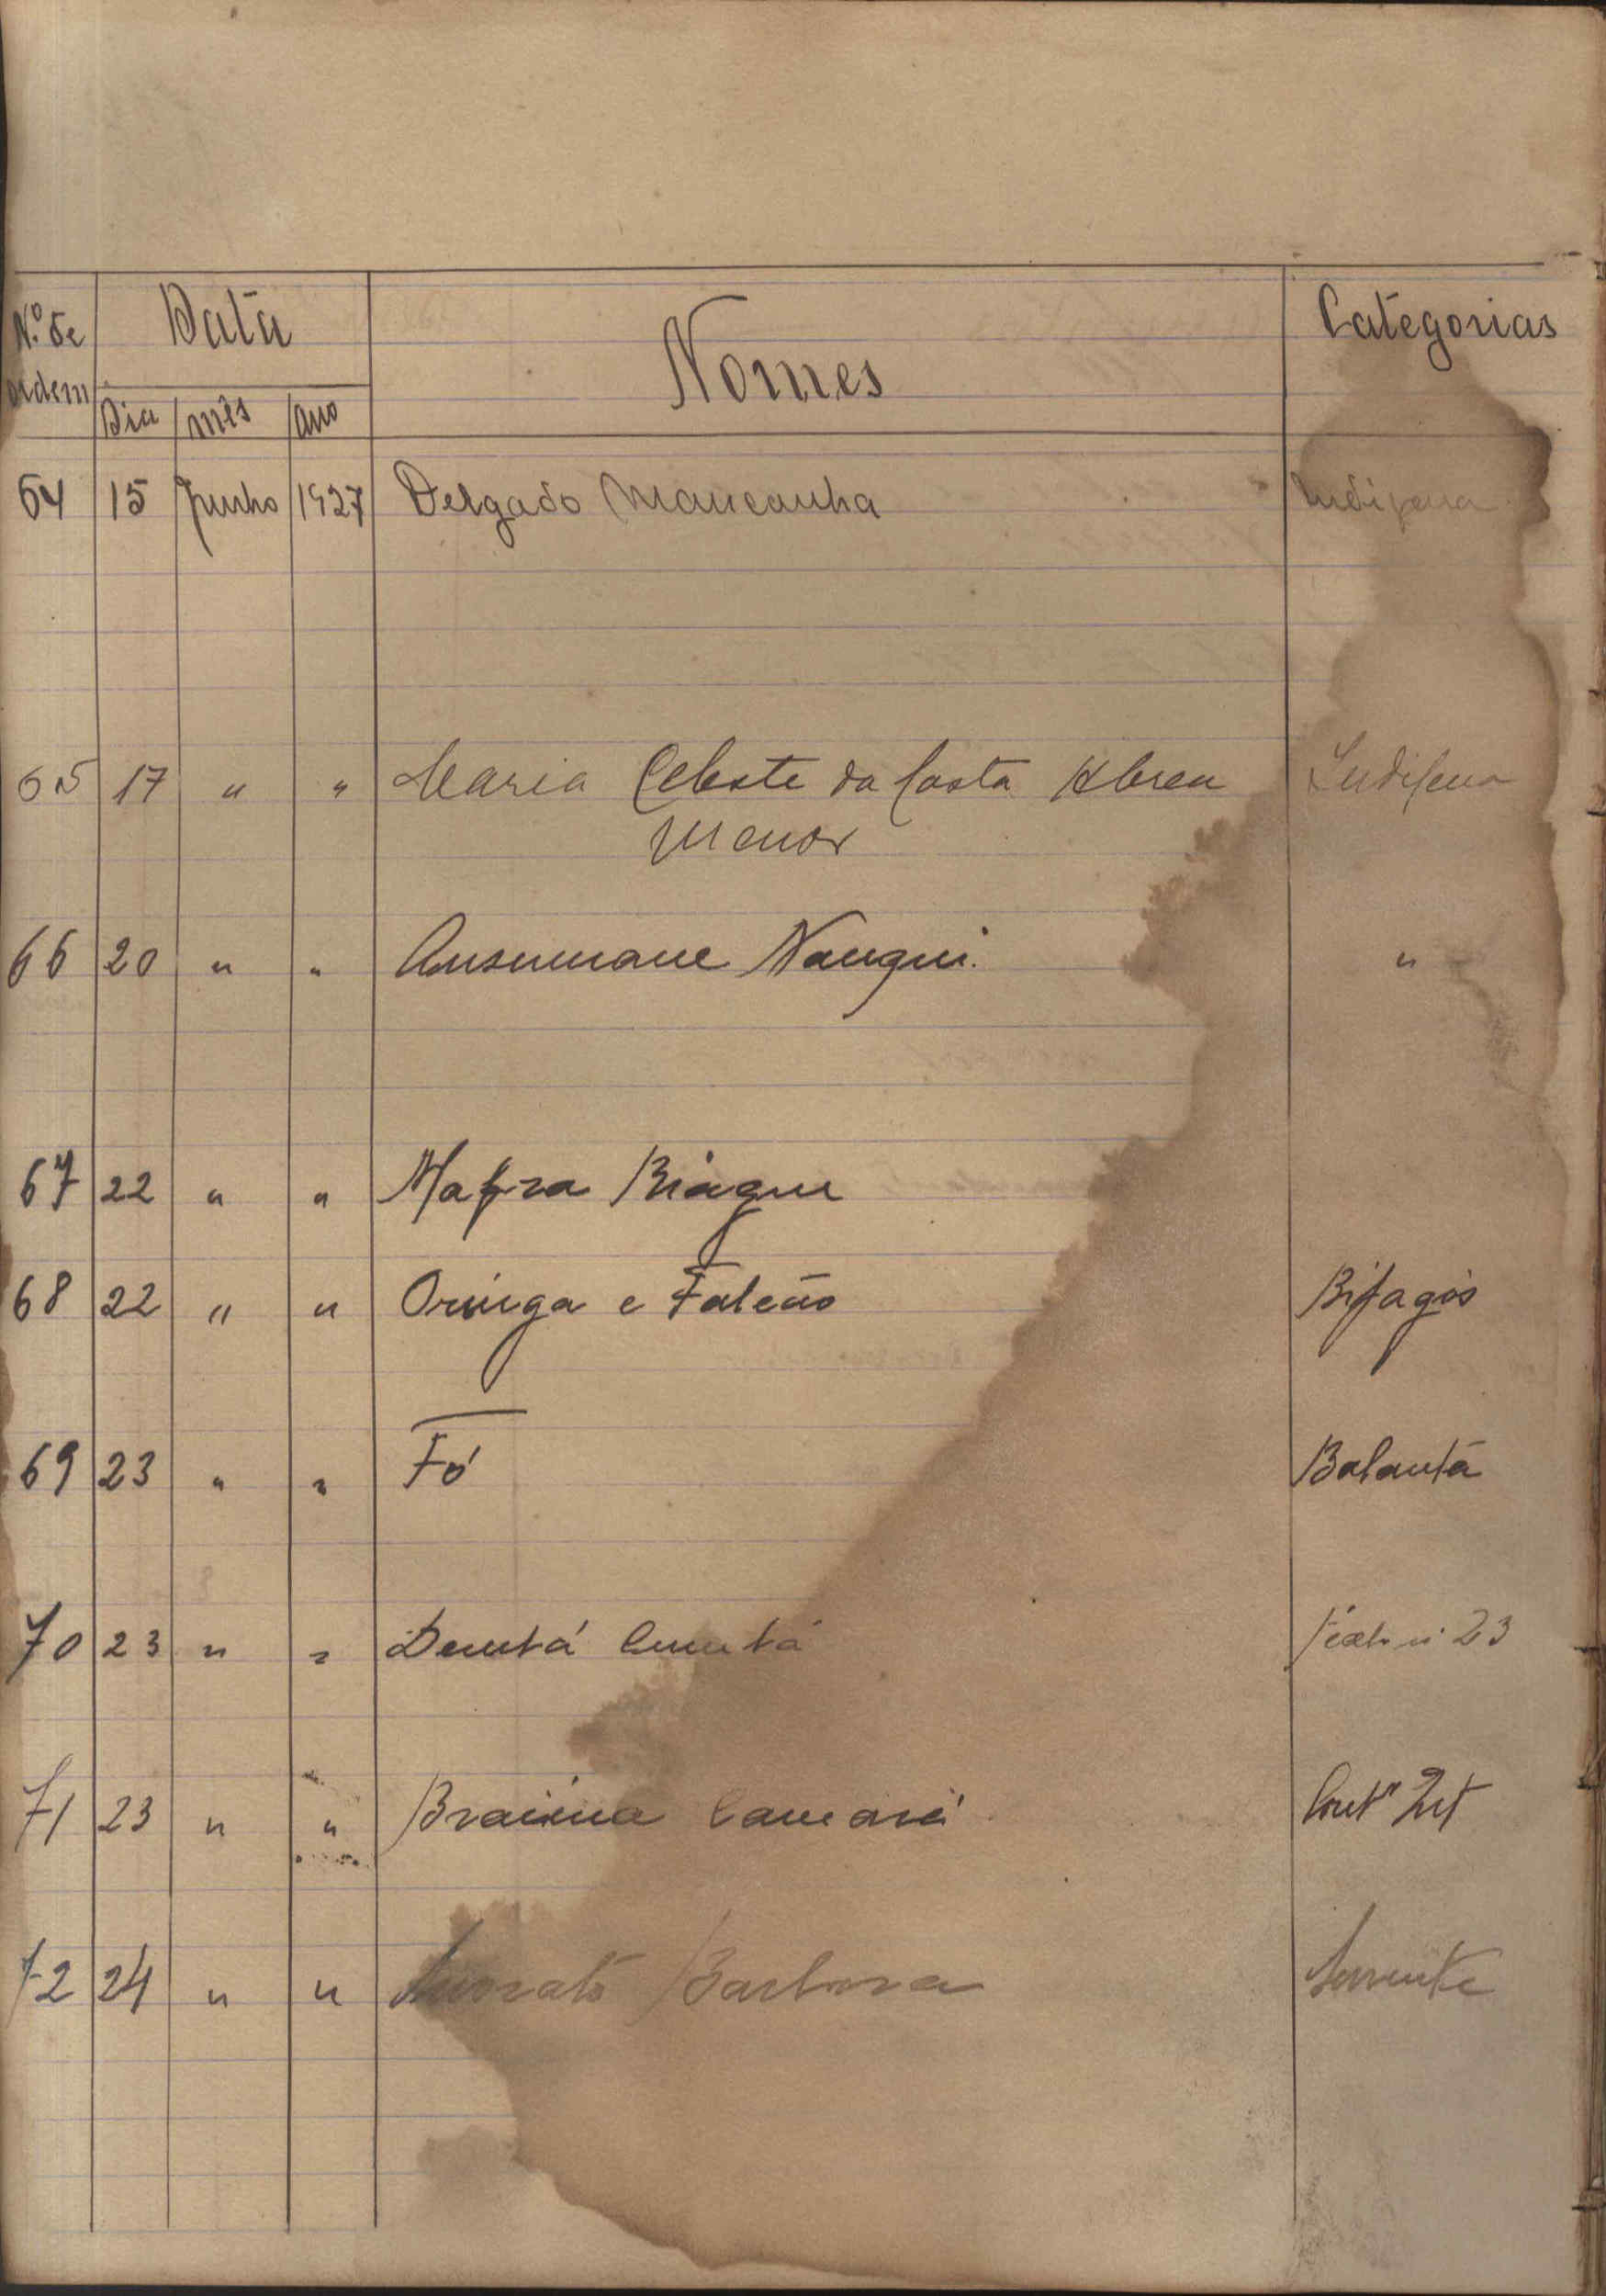 Nº de ordem Data Nomes Categorias
Dia mês ano
64 15 Junho 1927 Delgado Mancanha Indigena
65 17 " " Maria Celeste da Costa Abreu Indigena
Menor
66 20 " " Ansumane Nanqui. "
67 22 " " Mafra Biague
68 22 " " Oringa e Falcão Bijagós
69 23 " " Fó Balanta
70 23 " " 23
71 23 " " Braima Camará
72 24 " " Barbosa Servente